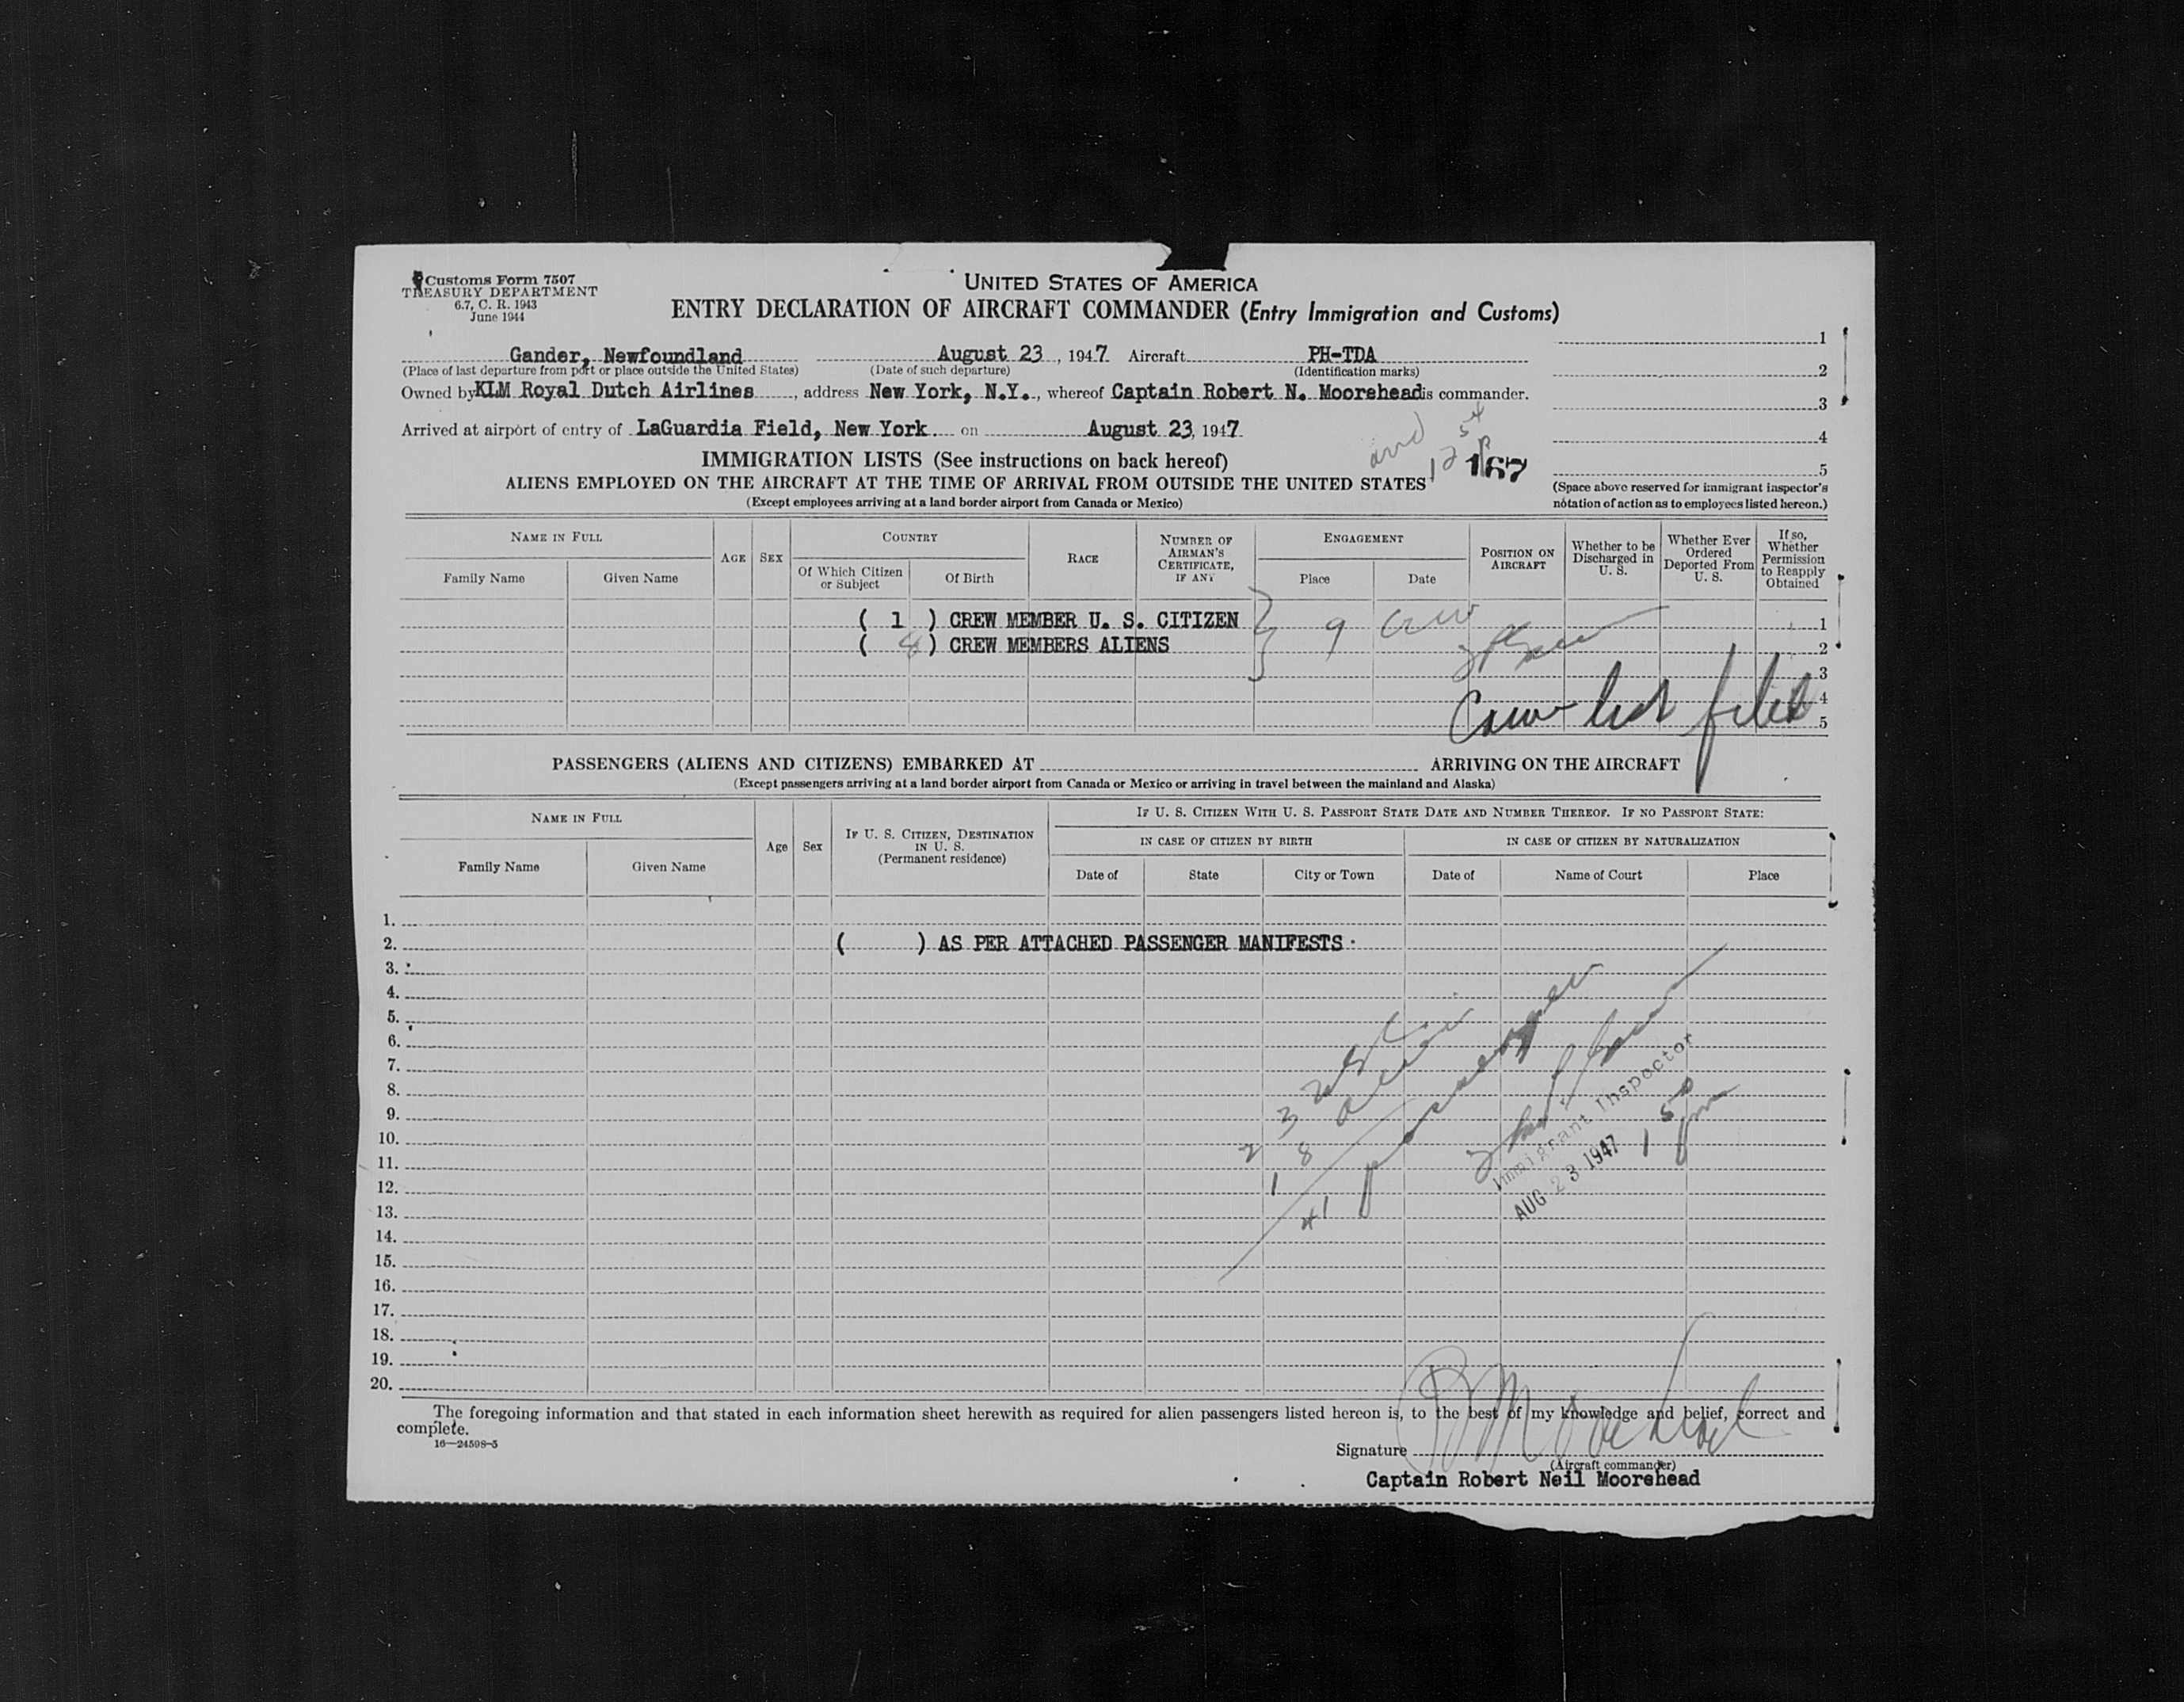 Customs Form 7507
TREASURY DEPARTMENT
6.7, C. R. 1943
June 1944
UNITED STATES OF AMERICA
ENTRY DECLARATION OF AIRCRAFT COMMANDER (Entry Immigration and Customs)
Gander, Newfoundland August 23, 1947 Aircraft PH-TDA
(Place of last departure from port or place outside the United States) (Date of such departure) (Identification marks)
Owned by KLM Royal Dutch Airlines, address New York, N.Y., whereof Captain Robert N. Moorehead is commander.
Arrived at airport of entry of LaGuardia Field, New York on August 23, 1947
1
2
3
4
5
(Space above reserved for immigrant inspector's
notation of action as to employees listed hereon.)
arrd 12 54 P
167
IMMIGRATION LISTS (See instructions on back hereof)
ALIENS EMPLOYED ON THE AIRCRAFT AT THE TIME OF ARRIVAL FROM OUTSIDE THE UNITED STATES
(Except employees arriving at a land border airport from Canada or Mexico)
NAME IN FULL
Family Name Given Name
AGE SEX
COUNTRY
Of Which Citizen or Subject
Of Birth
RACE
NUMBER OF AIRMAN'S CERTIFICATE, IF ANY
ENGAGEMENT
Place Date
POSITION ON AIRCRAFT
Whether to be Discharged in U. S.
Whether Ever Ordered Deported From U. S.
If so, Whether Permission to Reapply Obtained
( 1 ) CREW MEMBER U. S. CITIZEN 1
( 8 ) CREW MEMBERS ALIENS 2
9 Crew
3
4
5
Crew list filed
PASSENGERS (ALIENS AND CITIZENS) EMBARKED AT ARRIVING ON THE AIRCRAFT
(Except passengers arriving at a land border airport from Canada or Mexico or arriving in travel between the mainland and Alaska)
NAME IN FULL
Family Name Given Name
Age Sex
IF U. S. CITIZEN, DESTINATION IN U. S.
(Permanent residence)
IF U. S. CITIZEN WITH U. S. PASSPORT STATE DATE AND NUMBER THEREOF. IF NO PASSPORT STATE:
IN CASE OF CITIZEN BY BIRTH IN CASE OF CITIZEN BY NATURALIZATION
Date of State City or Town Date of Name of Court Place
1.
2. ( ) AS PER ATTACHED PASSENGER MANIFESTS
3.
4.
5.
6.
7.
8.
9.
10.
11.
12.
13.
14.
15.
16.
17.
18.
19.
20.
23 USC
18 Alien
41 passenger
Immigrant Inspector
AUG 23 1947 1 50 pm
The foregoing information and that stated in each information sheet herewith as required for alien passengers listed hereon is, to the best of my knowledge and belief, correct and
complete.
16—24598-5
Signature R N Moorehead
(Aircraft commander)
Captain Robert Neil Moorehead